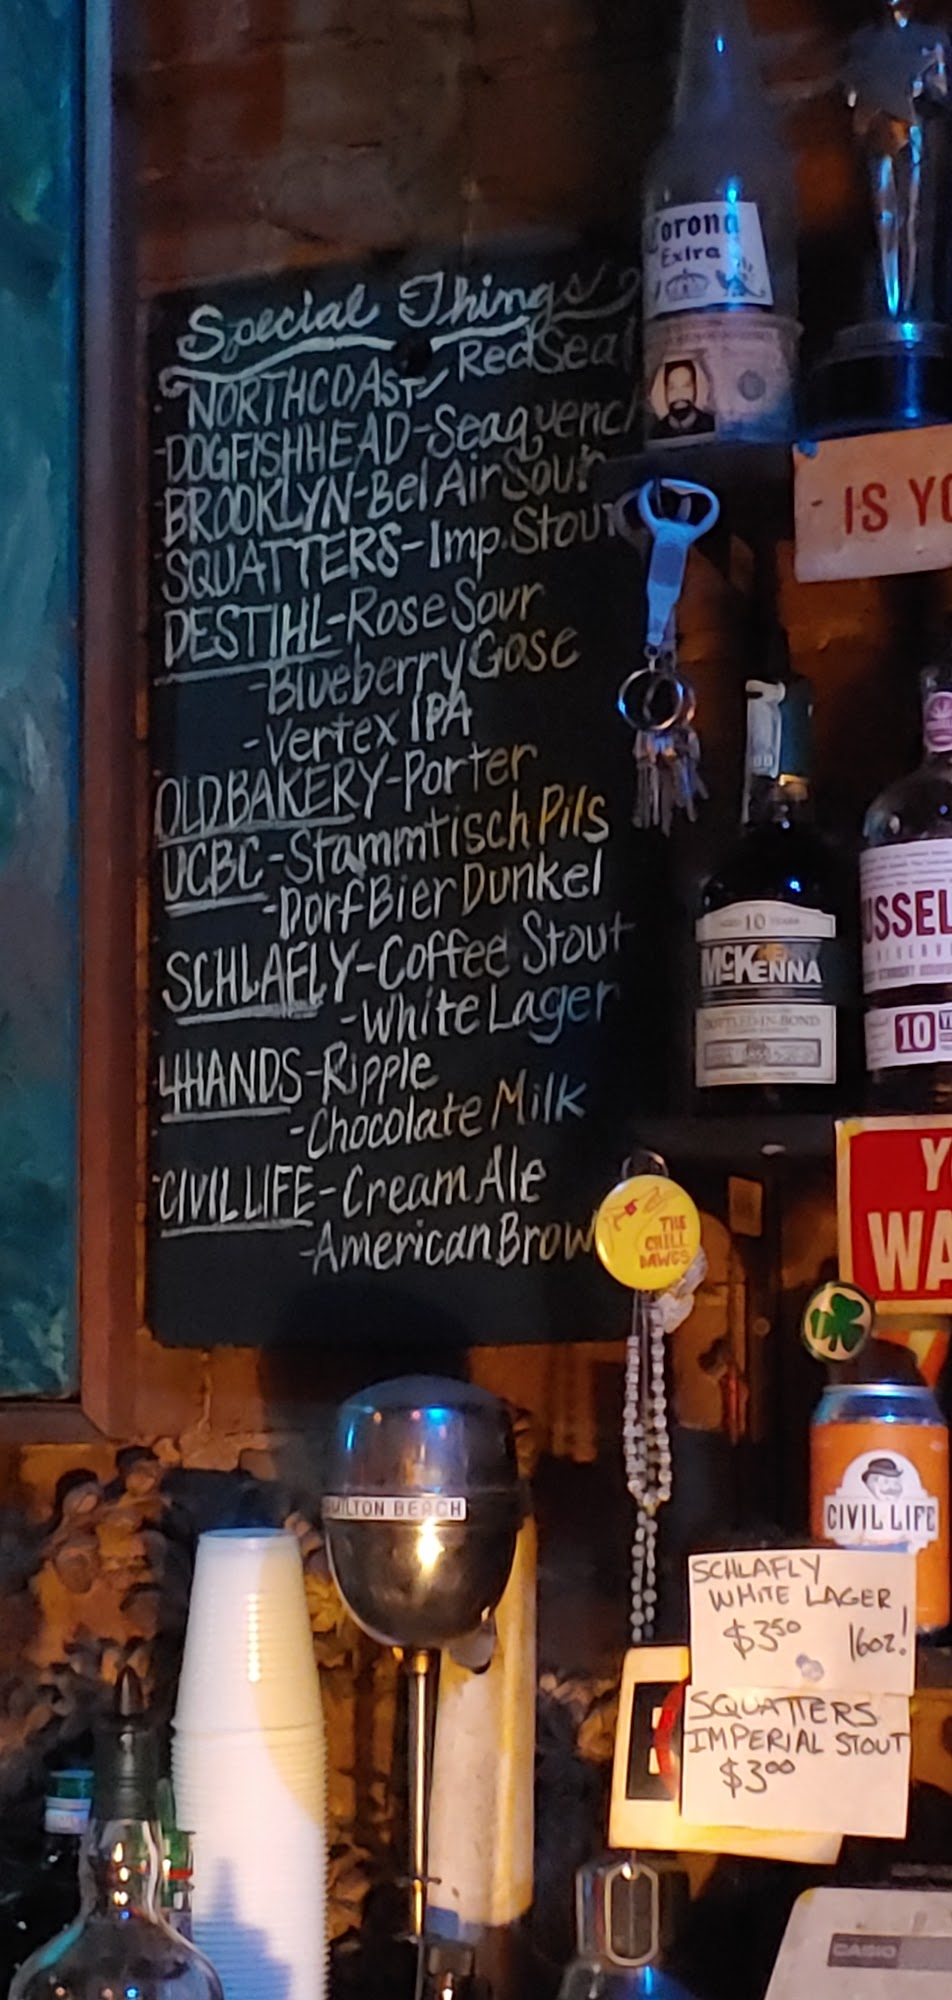 Special Things
NORTHCOAST-Red Seal
DOGFISHHEAD-Seaquench
BROOKLYN-Bel Air Sour
SQUATTERS-Imp. Stout
DESTIHL-Rose Sour
-Blueberry Gose
-Vertex IPA
OLD BAKERY-Porter
UCBC-Stammtisch Pils
-Dorf Bier Dunkel
SCHLAFLY-Coffee Stout
-White Lager
4HANDS-Ripple
-Chocolate Milk
CIVIL LIFE-Cream Ale
-American Brow
Corona
Extra
- IS YO
AGED 10 YEARS
McKENNA
BOTTLED-IN-BOND
USSEL
10
Y
WA
THE
CHILL
DAWGS
MILTON BEACH
CIVIL LIFE
SCHLAFLY
WHITE LAGER
$3.50 16oz!
SQUATTERS
IMPERIAL STOUT
$3.00
CASIO